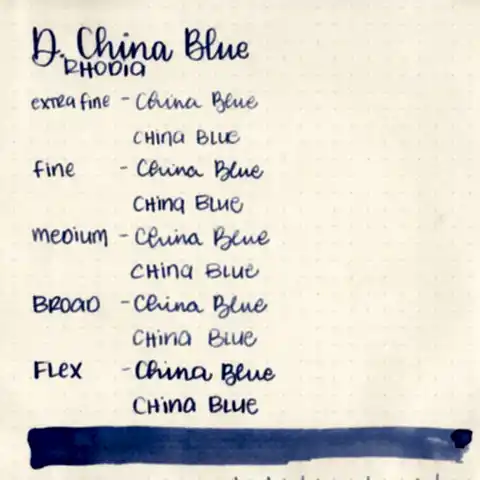 D. China Blue
RHODIA
extra fine - China Blue
CHINA BLUE
fine - China Blue
CHINA BLUE
medium - China Blue
CHINA BLUE
BROAD - China Blue
CHINA BLUE
FLEX - China Blue
CHINA BLUE